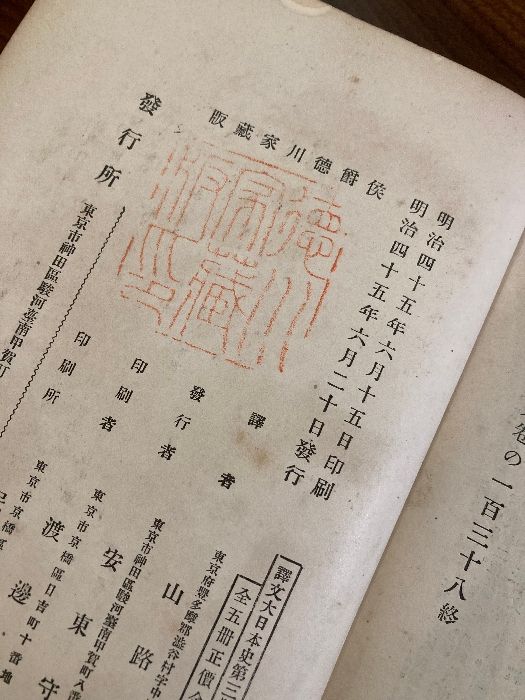 卷の一百三十八終
明治四十五年六月十五日印刷
明治四十五年六月二十日發行
侯爵德川家藏版
德川
家藏
版印
譯文大日本史第三
全五冊正價金
譯者
東京府豐多摩郡澁谷村字中
山路
發行者
東京市神田區駿河臺南甲賀町八番
安東守
印刷者
東京市京橋區日吉町十番地
渡邊
印刷所
東京市京橋區
發行所
東京市神田區駿河臺南甲賀町